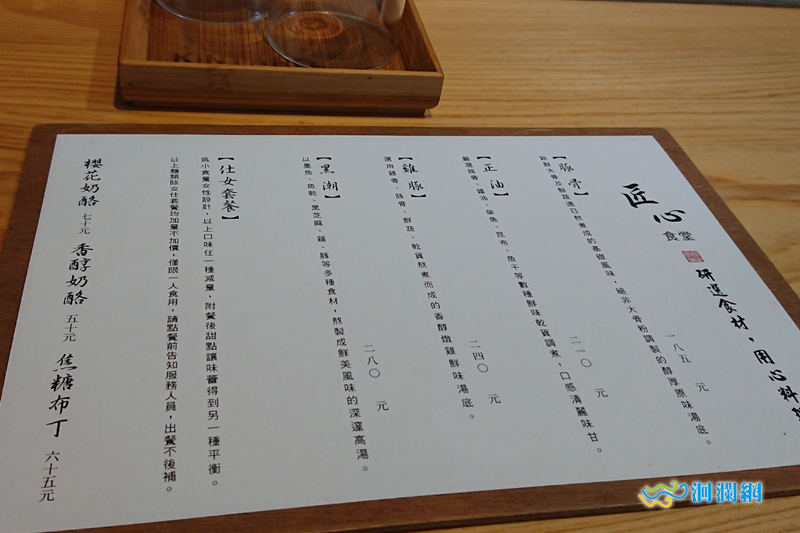 匠心
食堂
研選食材，用心料
【豚骨】
一八五 元
新鮮大骨及鮮蔬逐日熬煮成的基礎風味，絕非大骨粉調製的醇厚原味湯底。
【正油】
二一〇 元
嚴選豚骨、醬油、柴魚、昆布、魚干等數種鮮味乾貨調煮，口感清麗味甘。
【雞豚】
二四〇 元
選用雞骨、豚骨、鮮蔬、乾貨熬煮而成的香醇燉雞鮮味湯底。
【黑潮】
二八〇 元
以墨魚、魚乾、黑芝麻、雞、豚等多種食材，熬製成鮮美風味的深邃高湯。
【仕女套餐】
為小食量女性設計，以上口味任一種減量，附餐後甜點讓味蕾得到另一種平衡。
以上麵類除女仕套餐均加量不加價，僅限一人食用，請點餐前告知服務人員，出餐不後補。
櫻花奶酪 七十元 香醇奶酪 五十元 焦糖布丁 六十五元
洄瀾網